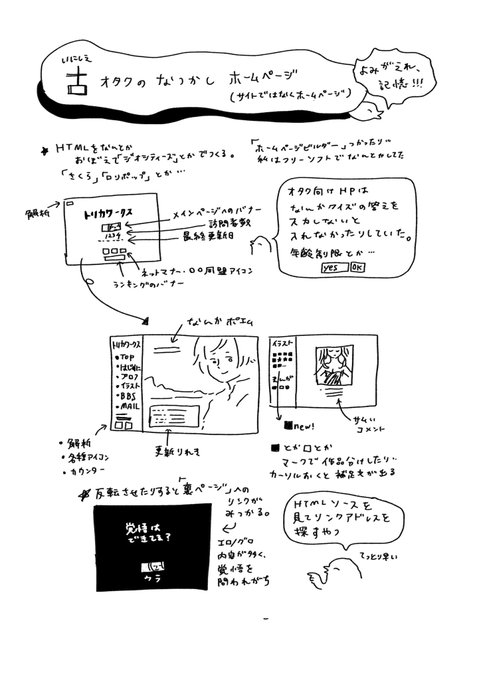 いにしえ
古 オタクの なつかし ホームページ
(サイトではなくホームページ)
よみがえれ、
記憶!!!
★ HTMLをなんとか
おぼえてジオシティーズとかでつくる。
「さくら」「ロリポップ」とか…
「ホームページビルダー」つかったり…
私はフリーソフトでなんとかしてた
解析
トリカワワークス
1234
メインページへのバナー
訪問者数
最終更新日
ネットマナー・○○同盟アイコン
ランキングのバナー
オタク向けHPは
なんかクイズの答えを
入力しないと
入れなかったりしていた。
年齢制限とか…
yes OK
なんかポエム
トリカワワークス
・TOP
・はじめに
・プロフ
・イラスト
・BBS
・MAIL
・解析
・各種アイコン
・カウンター
更新りれき
イラスト
まんが
■new!
サムい
コメント
■とか□とか
マークで作品分けしたり…
カーソルおくと補足文が出る
反転させたりすると「裏ページ」への
リンクが
みつかる。
覚悟は
できてる?
ウラ
エロ/グロ
内容が多く、
覚悟を
問われがち
HTMLソースを
見てリンクアドレスを
探すやつ
てっとり早い